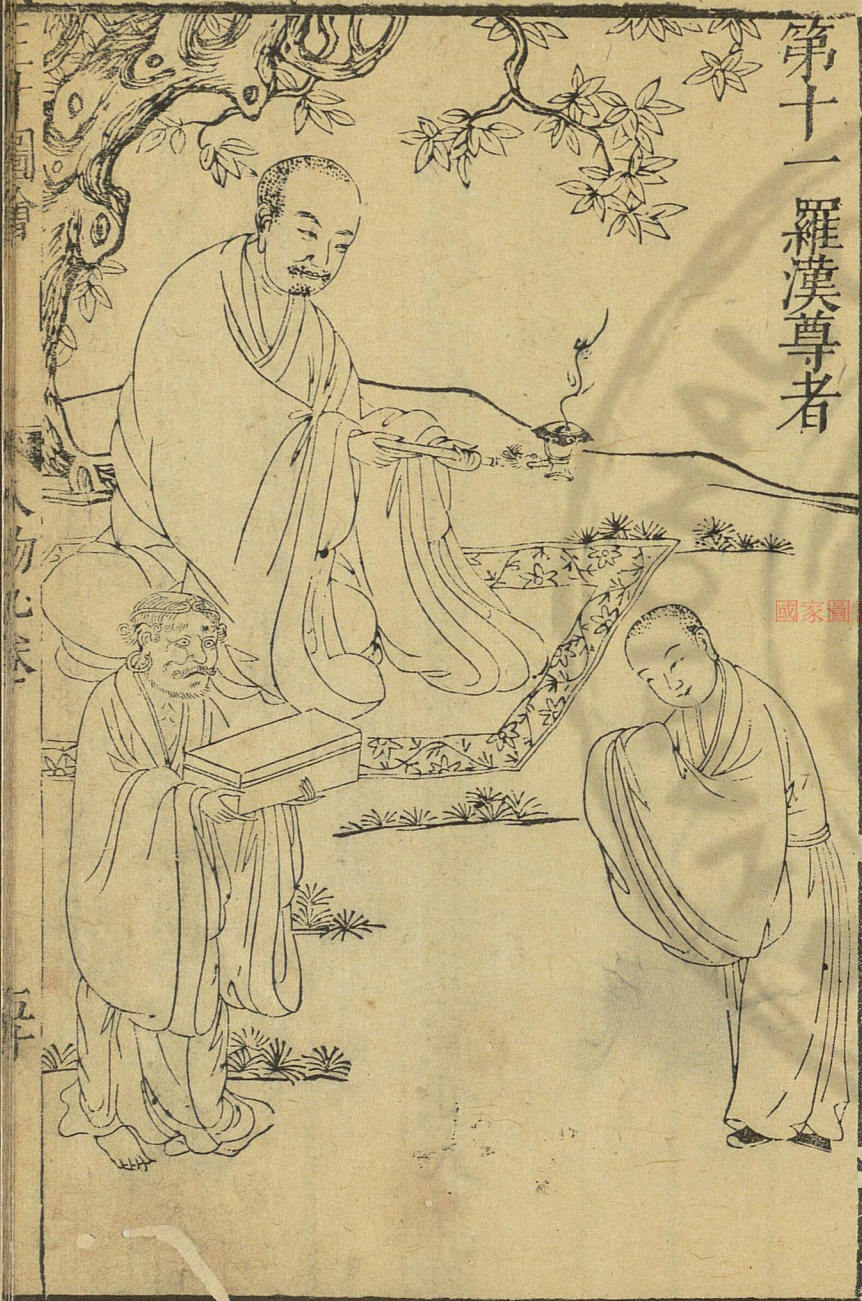 第十一羅漢尊者
國家圖
三才圖會
人物九卷
五十